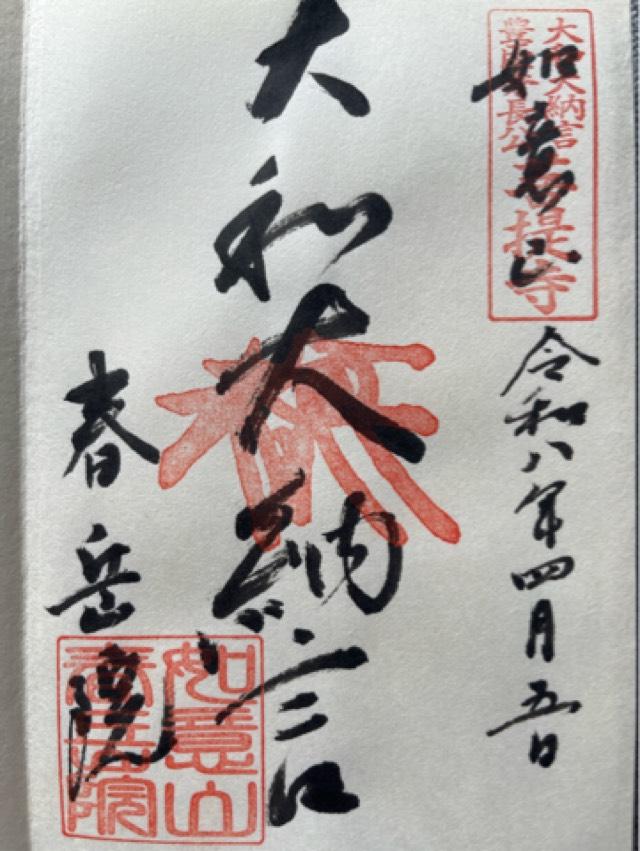 大和大納言
豊臣秀長公
菩提寺
如意山
令和八年四月五日
大和大納言
春岳院
如意山
春岳院